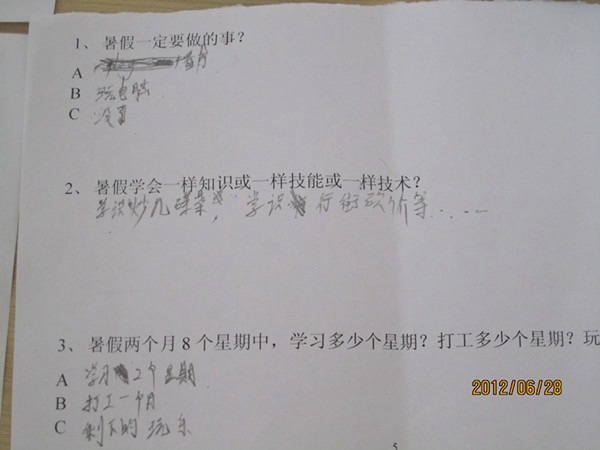 1、 暑假一定要做的事？
A
B 玩电脑
C 没了
2、 暑假学会一样知识或一样技能或一样技术？
学识炒几碟菜，学识行街砍价等......
3、 暑假两个月 8 个星期中，学习多少个星期？打工多少个星期？玩
A 学习2个星期
B 打工一个月
C 剩下的玩乐
2012/06/28
5